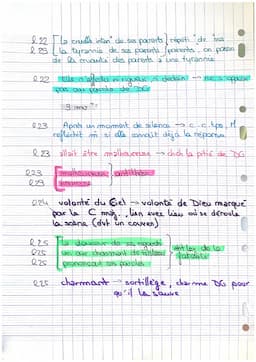 l.22 [ la cruelle inten° de ses parents ] répéti° de "ses
l.23 [ la tyrannie de ses parents ] parents", on passe
de la cruauté des parents à une tyrannie
l.22 Elle n'affecta ni rigueur, ni dédain →
pas aux paroles de DG
l.23 Après un moment de silence → c.c. tps, M
réfléchit si elle connaît déjà la réponse
l.23 allait être malheureuse → chch la pitié de DG
l.23 malheureuse } antithèse
l.24 volonté du Ciel → volonté de Dieu marqué
par la C maj. lien avec lieu où se déroule
la scène (dvt un couvent)
l.25 la douceur de ses regards
l.25 un air charmant de tristesse
l.25 prononçant ces paroles
l.25 charmant → sortilège, charme DG pour
qu'il la sauve